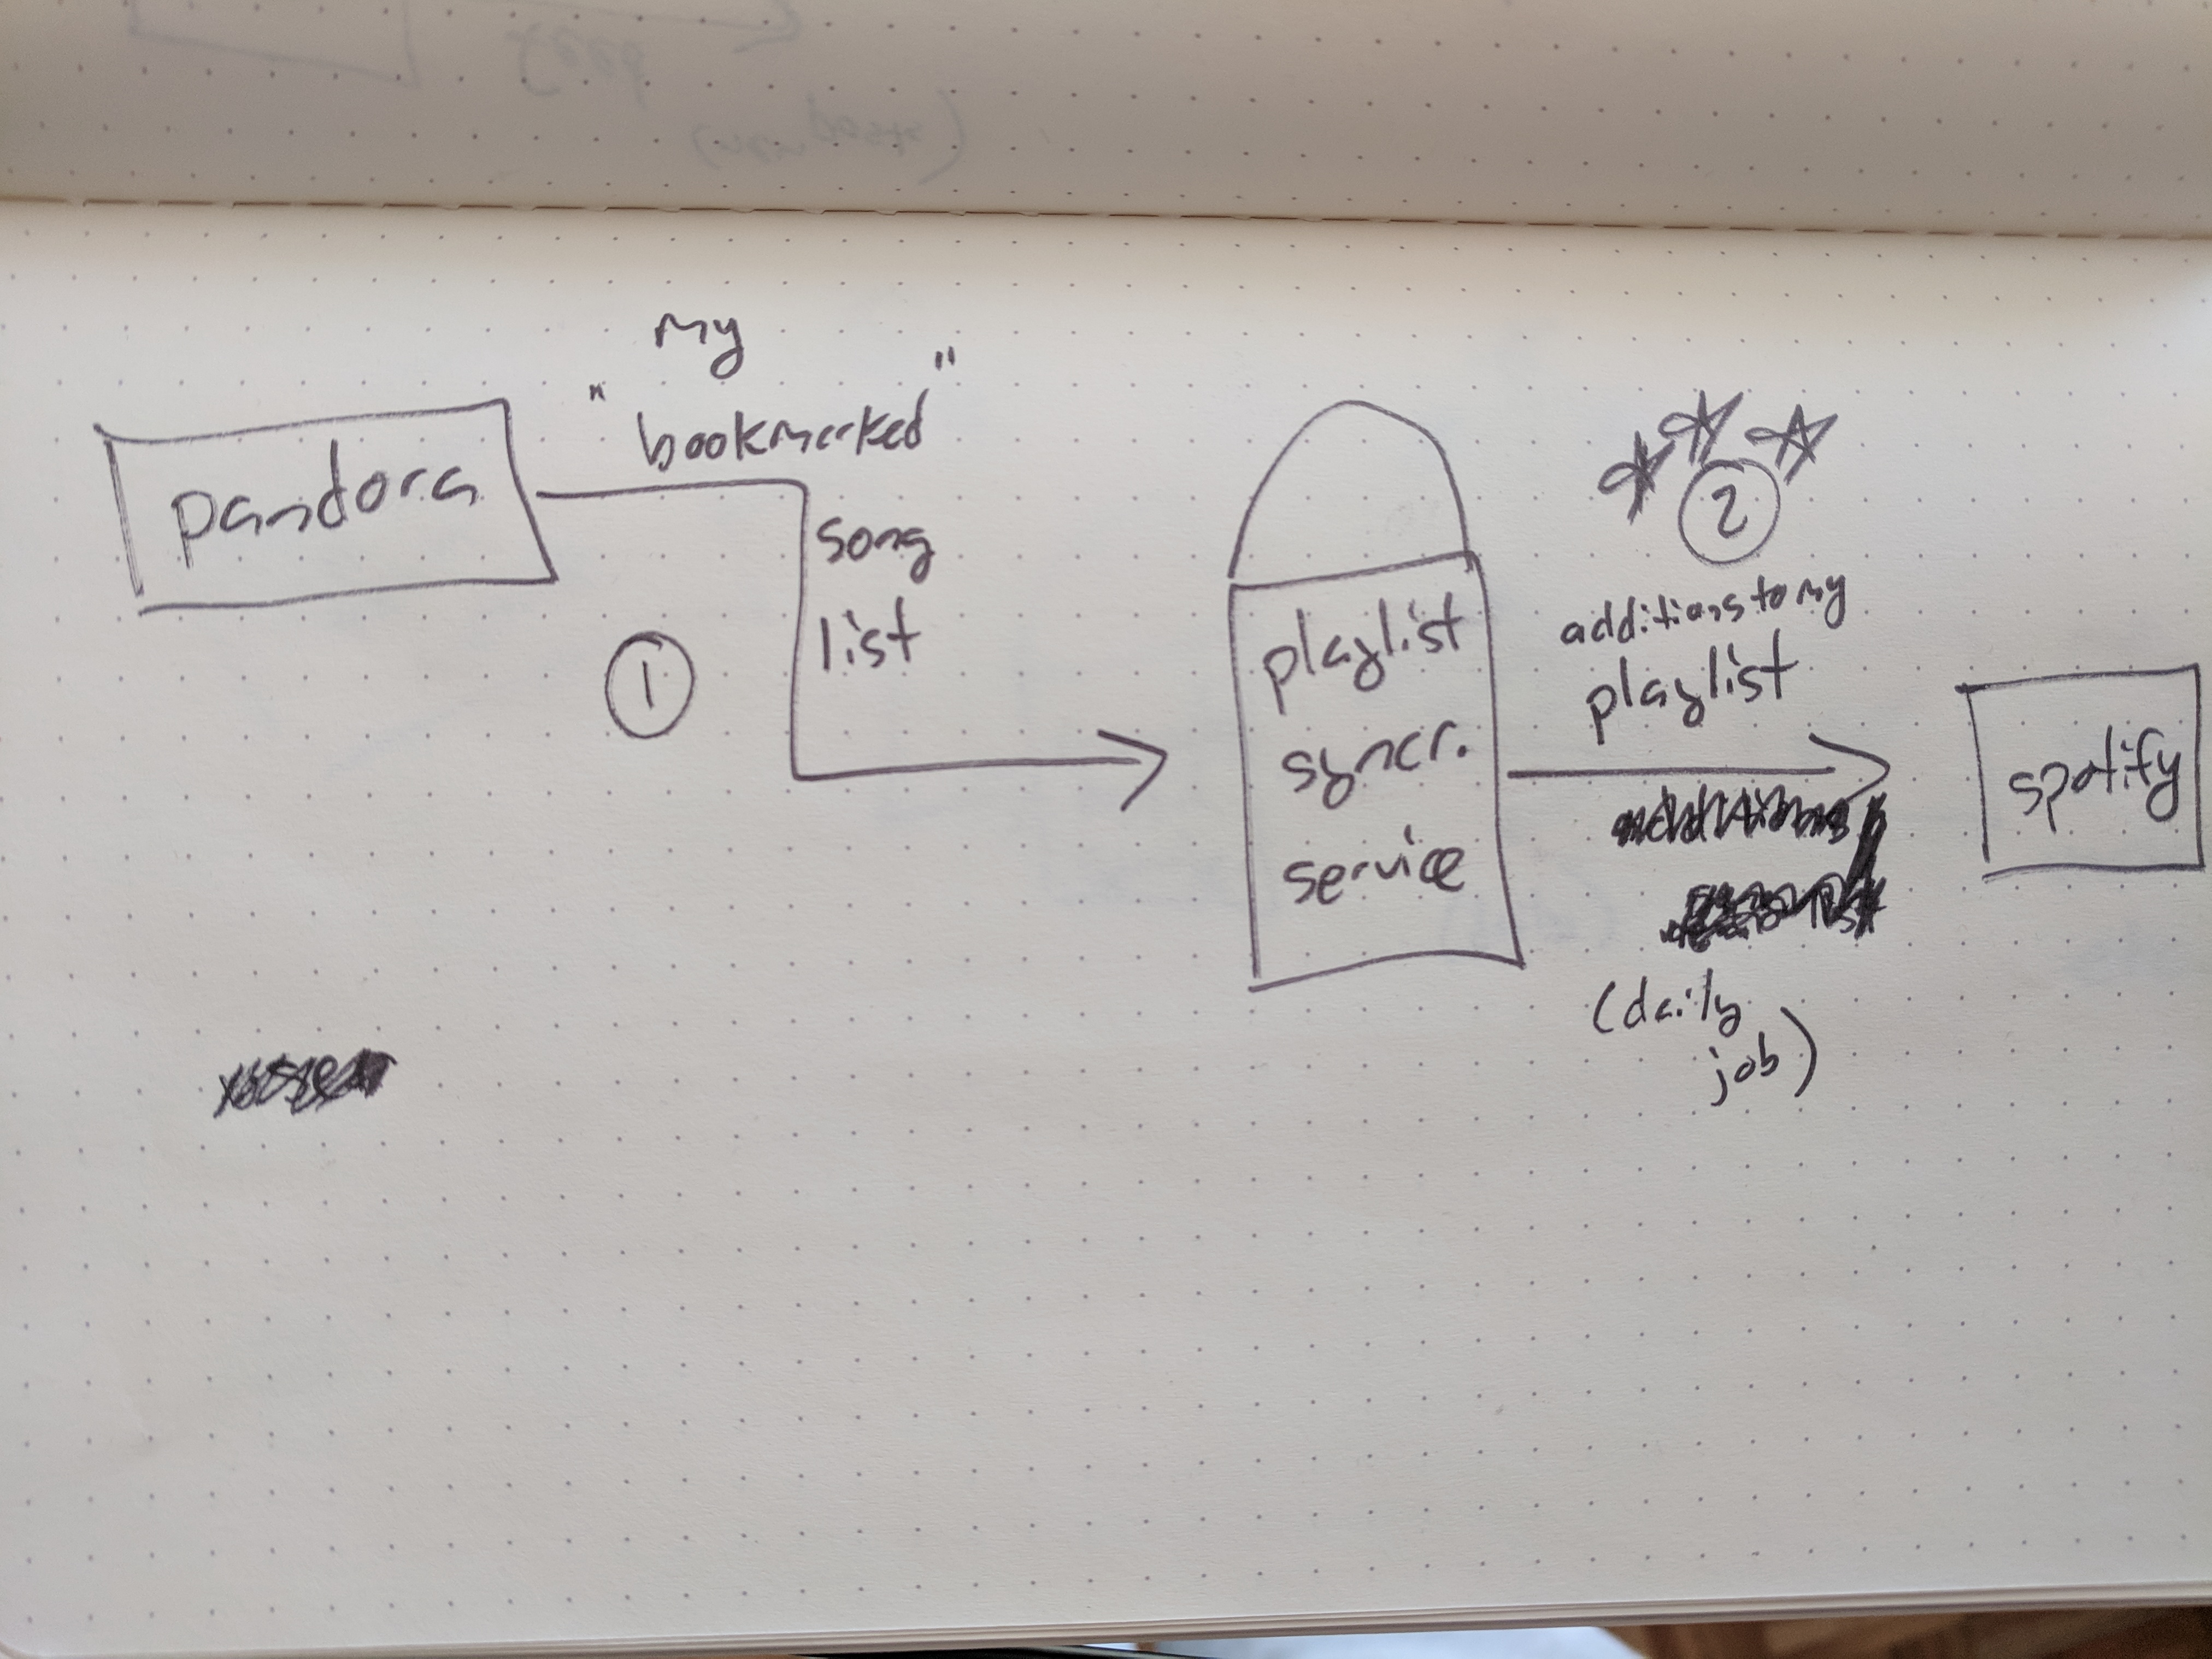 my
"bookmarked"
pandora
song
list
1
playlist
syncr.
service
2
additions to my
playlist
(daily
job)
spotify